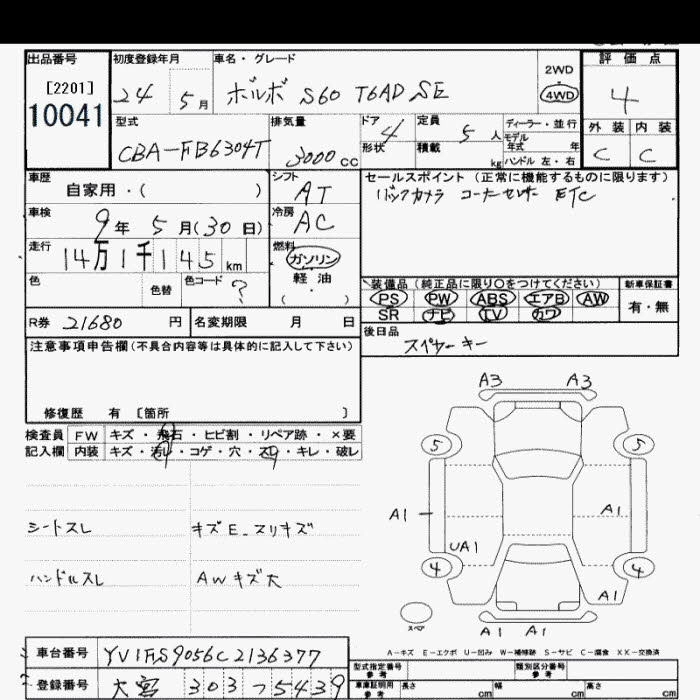 出品番号 初度登録年月 車名・グレード 評価点
[2201] 10041
24 5月 ボルボ S60 T6AD SE 2WD 4WD 4
型式 排気量 ドア 4 定員 5人 ディーラー・並行 外装 内装
CBA-FB6304T 3000cc 形状 積載 kg モデル年式 年 ハンドル 左・右 C C
車歴 シフト セールスポイント (正常に機能するものに限ります)
自家用・( ) AT バックカメラ コーナーセンサー ETC
車検 9年 5月(30日) 冷房 AC
走行 14万1千145km 燃料 ガソリン
色 色替 色コード ? 軽油 ( )
装備品 (純正品に限り○をつけてください) 新車保証書
PS PW ABS エアB AW 有・無
SR ナビ TV カワ
R券 21680円 名変期限 月 日 後日品
スペヤーキー
注意事項申告欄(不具合内容等は具体的に記入して下さい)
修復歴 有 [箇所 ]
検査員 FW キズ・飛石・ヒビ割・リペア跡・×要
記入欄 内装 キズ・汚れ・コゲ・穴・スレ・キレ・破レ
シートスレ キズE-スリキズ
ハンドルスレ AWキズ大
A3 A3
5 5
A1 A1
UA1
4 4
A1
スペア A1 A1
A-キズ E-エクボ U-凹み W-補修跡 S-サビ C-腐食 XX-交換済
車台番号 YV1FS9056C2136377
登録番号 大宮 303 つ 5439
型式指定番号 参考 類別区分番号 参考
車庫証明用 参考 長さ cm 幅 cm 高さ cm